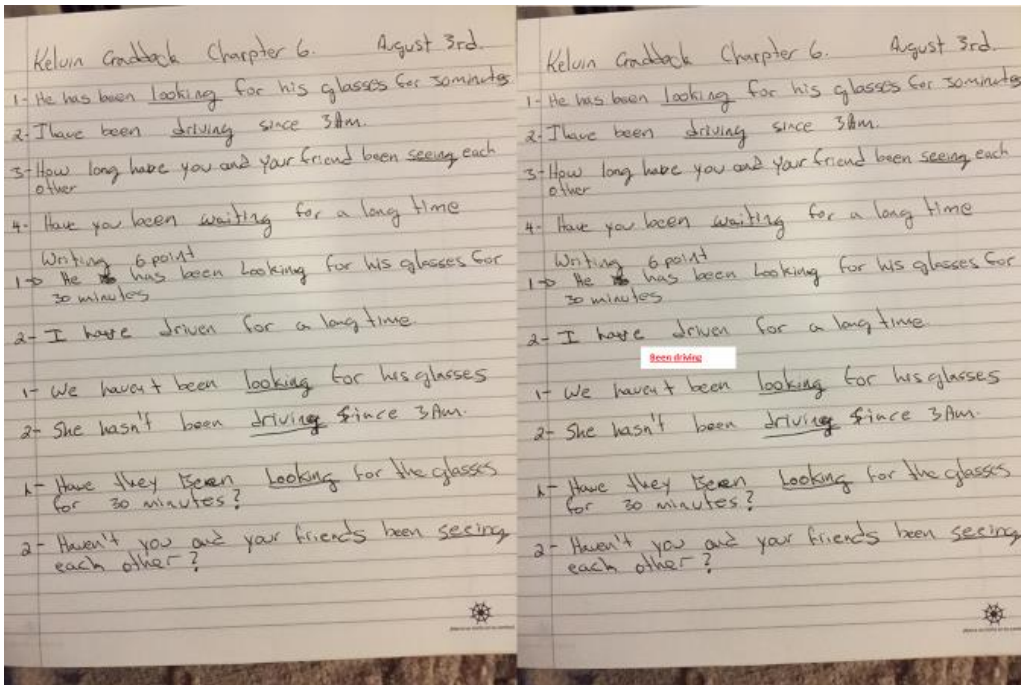 Kelvin Craddock Charpter 6. August 3rd.
1- He has been looking for his glasses for 30 minutes.
2- I have been driving since 3 Am.
3- How long have you and your friend been seeing each
other
4- Have you been waiting for a long time
Writing 6 point
1-> He has been Looking for his glasses for
30 minutes
2- I have driven for a long time.
1- We haven't been looking for his glasses
2- She hasn't been driving since 3 Am.
1- Have they been Looking for the glasses
for 30 minutes?
2- Haven't you and your friends been seeing
each other?
Kelvin Craddock Charpter 6. August 3rd.
1- He has been looking for his glasses for 30 minutes
2- I have been driving since 3 Am.
3- How long have you and your friend been seeing each
other
4- Have you been waiting for a long time
Writing 6 point
1-> He has been Looking for his glasses for
30 minutes
2- I have driven for a long time
Been driving
1- We haven't been looking for his glasses
2- She hasn't been driving since 3 Am.
1- Have they been Looking for the glasses
for 30 minutes?
2- Haven't you and your friends been seeing
each other?